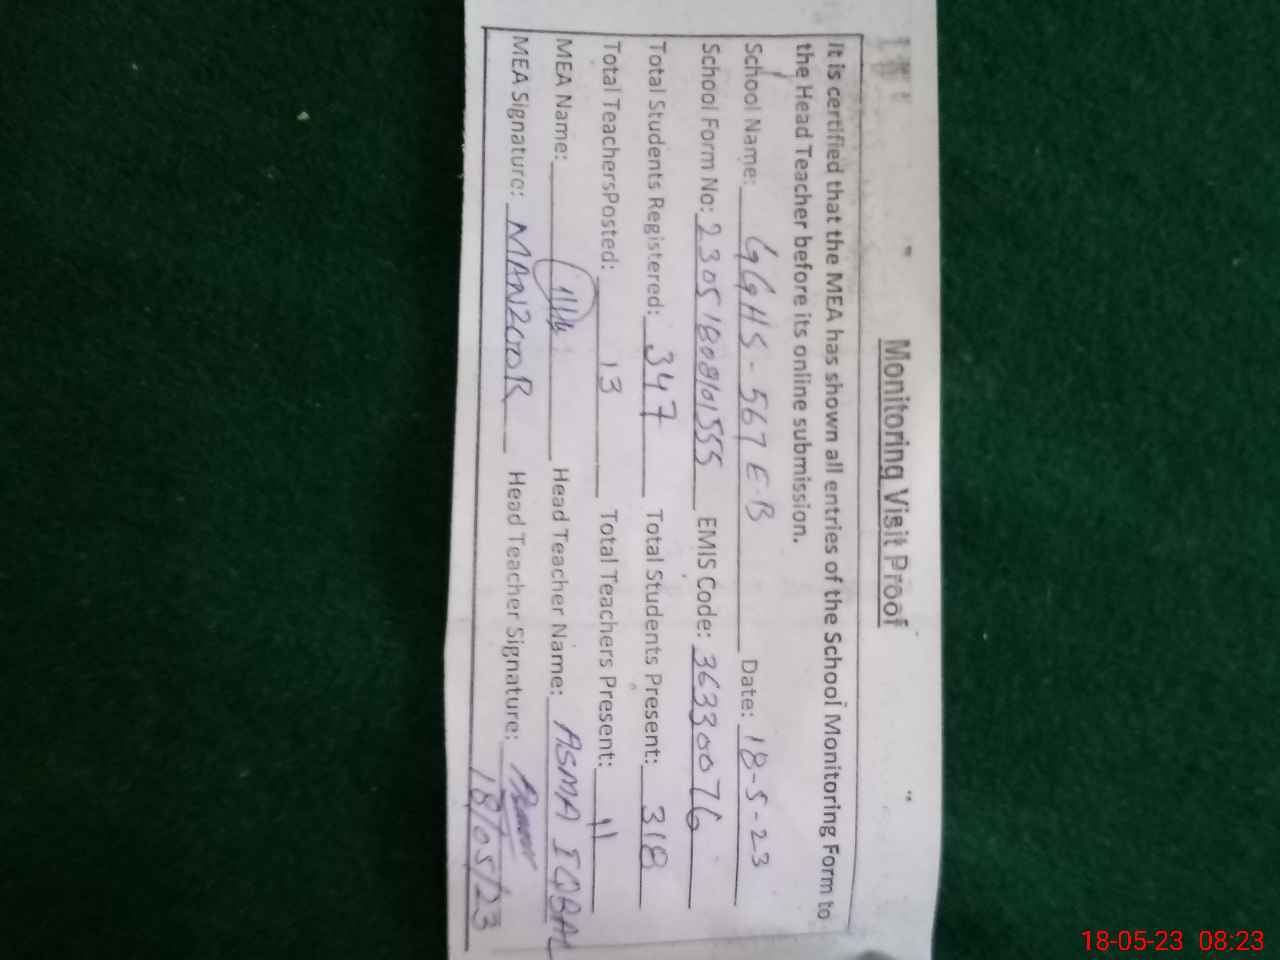 Monitoring Visit Proof
It is certified that the MEA has shown all entries of the School Monitoring Form to
the Head Teacher before its online submission.
School Name: GGHS - 567 E-B Date: 18-5-23
School Form No: 23051808101555 EMIS Code: 36330076
Total Students Registered: 347 Total Students Present: 318
Total TeachersPosted: 13 Total Teachers Present: 11
MEA Name: Head Teacher Name: ASMA IQBAL
MEA Signature: MANZOOR Head Teacher Signature:
18/05/23
18-05-23 08:23